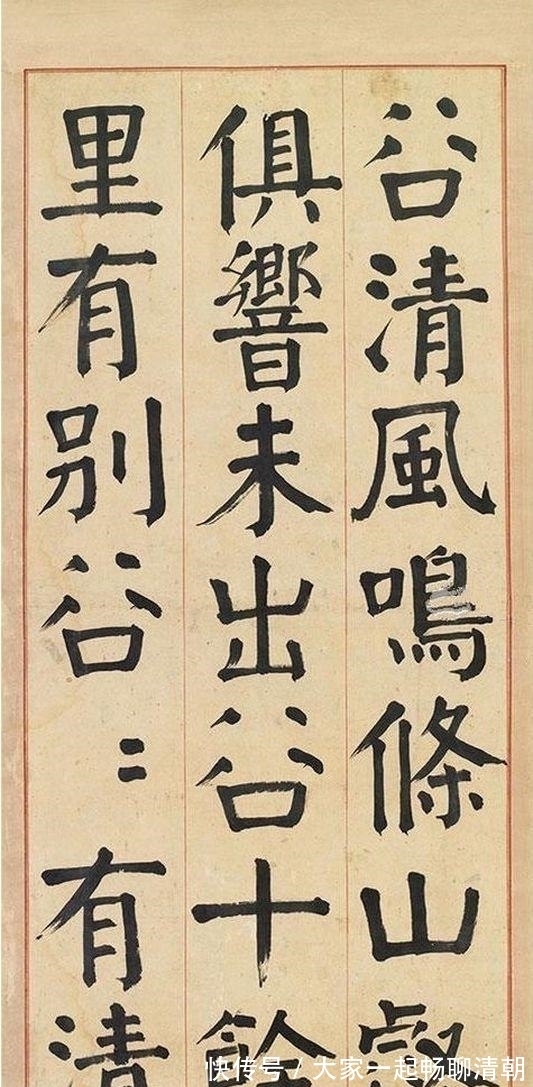 谷清風鳴條山
俱響未出谷十餘
里有別谷〻有清
快传号/大家一起畅聊清朝